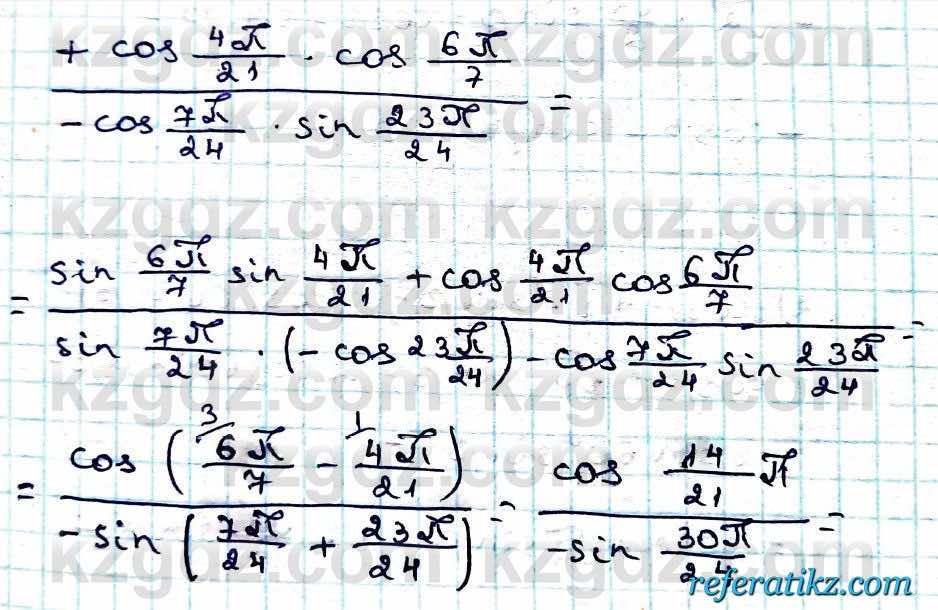 + cos 4π/21 · cos 6π/7
- cos 7π/24 · sin 23π/24 =
kzgdz.com kzgdz.com
= sin 6π/7 sin 4π/21 + cos 4π/21 cos 6π/7
sin 7π/24 · (- cos 23π/24) - cos 7π/24 sin 23π/24 =
= cos (6π/7 - 4π/21) 3 1
- sin (7π/24 + 23π/24)
= cos 14/21 π
- sin 30π/24 =
referatikz.com